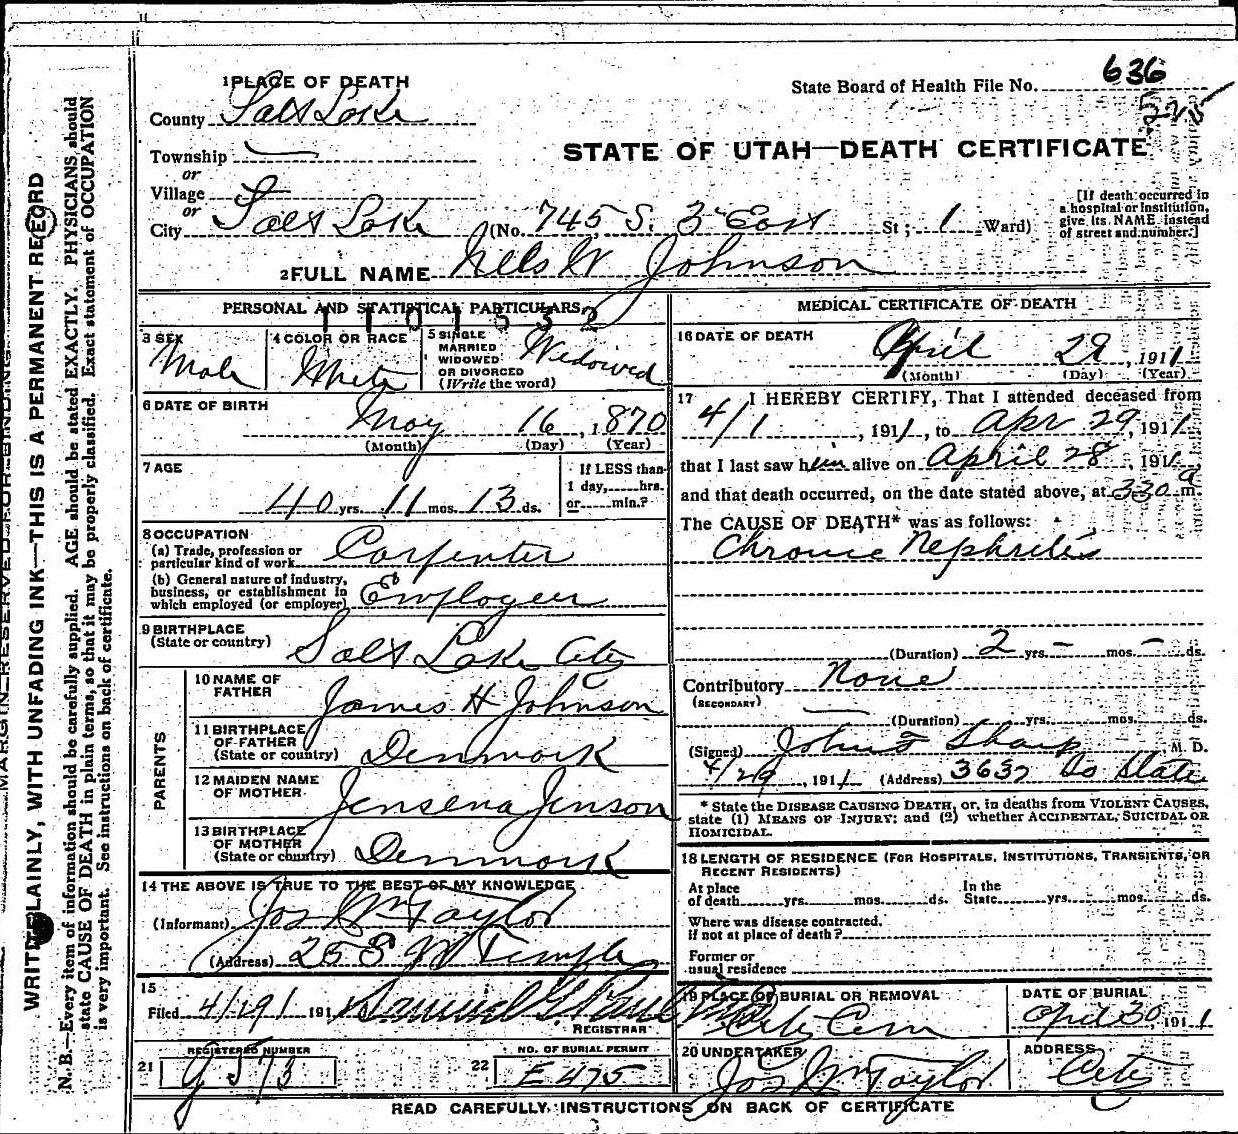 1 PLACE OF DEATH
State Board of Health File No. 636
525
County Salt Lake
Township
or
Village
or
STATE OF UTAH—DEATH CERTIFICATE
City Salt Lake (No. 745 S. 3 East St; 1 Ward)
[If death occurred in
a hospital or institution,
give its NAME instead
of street and number.]
2 FULL NAME Nels W Johnson
PERSONAL AND STATISTICAL PARTICULARS
1101532
3 SEX
Male
4 COLOR OR RACE
White
5 SINGLE
MARRIED
WIDOWED
OR DIVORCED
(Write the word)
Widowed
6 DATE OF BIRTH
May 16, 1870
(Month) (Day) (Year)
7 AGE
40 yrs. 11 mos. 13 ds.
If LESS than
1 day, hrs.
or min.?
8 OCCUPATION
(a) Trade, profession or
particular kind of work Carpenter
(b) General nature of industry,
business, or establishment in
which employed (or employer) Employee
9 BIRTHPLACE
(State or country) Salt Lake City
PARENTS
10 NAME OF
FATHER James H Johnson
11 BIRTHPLACE
OF FATHER
(State or country) Denmark
12 MAIDEN NAME
OF MOTHER Jensena Jenson
13 BIRTHPLACE
OF MOTHER
(State or country) Denmark
14 THE ABOVE IS TRUE TO THE BEST OF MY KNOWLEDGE
(Informant) Jos Wm Taylor
(Address) 25 S W Temple
15
Filed 4/29/ 191 Samuel G. Paul
REGISTRAR
21 REGISTERED NUMBER
G 573
22 NO. OF BURIAL PERMIT
E 475
MEDICAL CERTIFICATE OF DEATH
16 DATE OF DEATH
April 29, 1911
(Month) (Day) (Year)
17 I HEREBY CERTIFY, That I attended deceased from
4/1, 1911, to Apr 29, 1911
that I last saw him alive on April 28, 1911
and that death occurred, on the date stated above, at 330 a m.
The CAUSE OF DEATH* was as follows:
Chronic Nephritis
(Duration) 2 yrs. – mos. – ds.
Contributory None
(SECONDARY)
(Duration) yrs. mos. ds.
(Signed) John F Sharp M. D.
4/29, 1911 (Address) 3632 So State
* State the DISEASE CAUSING DEATH, or, in deaths from VIOLENT CAUSES,
state (1) MEANS OF INJURY; and (2) whether ACCIDENTAL, SUICIDAL OR
HOMICIDAL.
18 LENGTH OF RESIDENCE (FOR HOSPITALS, INSTITUTIONS, TRANSIENTS, OR
RECENT RESIDENTS)
At place
of death yrs. mos. ds.
In the
State yrs. mos. ds.
Where was disease contracted,
if not at place of death?
Former or
usual residence
19 PLACE OF BURIAL OR REMOVAL
City Cem
DATE OF BURIAL
April 30, 1911
20 UNDERTAKER
Jos Wm Taylor
ADDRESS
City
READ CAREFULLY INSTRUCTIONS ON BACK OF CERTIFICATE
MARGIN RESERVED FOR BINDING
WRITE PLAINLY, WITH UNFADING INK—THIS IS A PERMANENT RECORD
N. B.—Every item of information should be carefully supplied. AGE should be stated EXACTLY. PHYSICIANS should
state CAUSE OF DEATH in plain terms, so that it may be properly classified. Exact statement of OCCUPATION
is very important. See instructions on back of certificate.